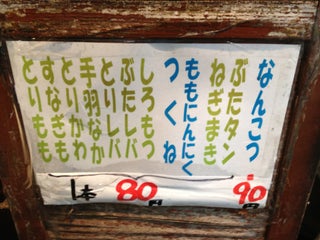 なんこつ
ぶたタン
ねぎまき
ももにんにく
つくね
しろもつ
ぶたレバ
とりレバ
手羽なか
とりかわ
すなぎも
とりもも
1本 80円
90円